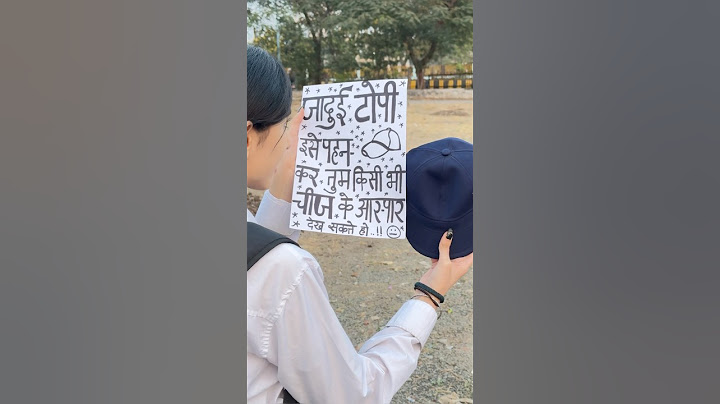 जादुई टोपी
इसे पहन-
कर तुम किसी भी
चीज के आरपार
देख सकते हो..!!